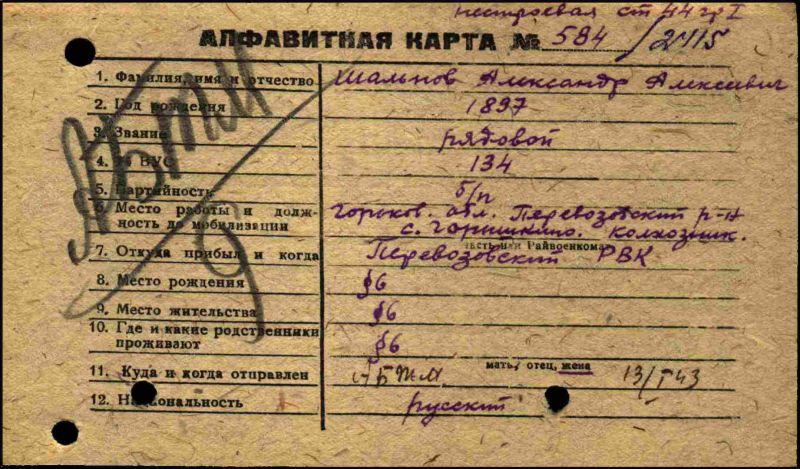 нестроевая ст 44 гр I
АЛФАВИТНАЯ КАРТА № 584/2415
1. Фамилия, имя и отчество Шальнов Александр Алексеевич
2. Год рождения 1897
3. Звание рядовой
4. № ВУС 134
5. Партийность б/п
6. Место работы и долж-
ность до мобилизации Горьков. обл. Перевозовский р-н
с. колхозник.
7. Откуда прибыл и когда Перевозовский РВК
часть или Райвоенкомат
8. Место рождения §6
9. Место жительства §6
10. Где и какие родственники
проживают §6
мать, отец, жена
11. Куда и когда отправлен АБТМ 13/I 43
12. Национальность русский